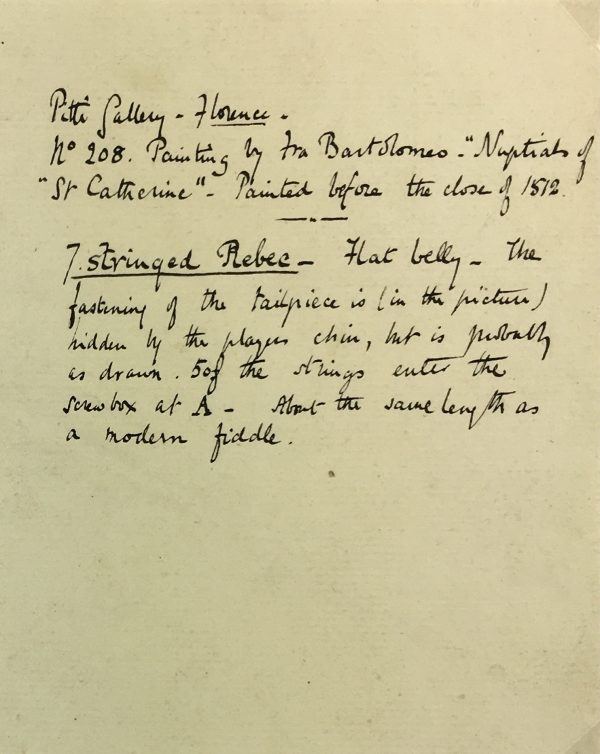 Pitti Gallery - Florence -
No 208. Painting by Fra Bartolomeo - "Nuptials of
"St Catherine" - Painted before the close of 1512.
7. stringed Rebec - Flat belly - The
fastening of the tailpiece is (in the picture)
hidden by the players chin, but is probably
as drawn. 5 of the strings enter the
screwbox at A - About the same length as
a modern fiddle.